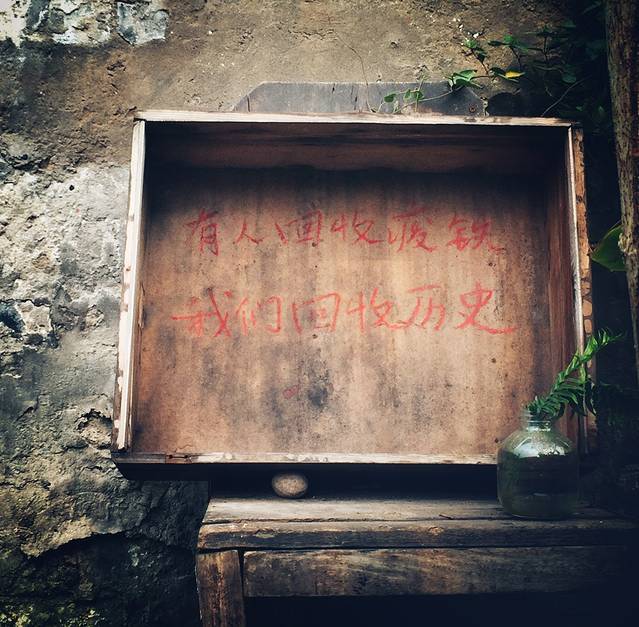 有人回收废铁
我们回收历史